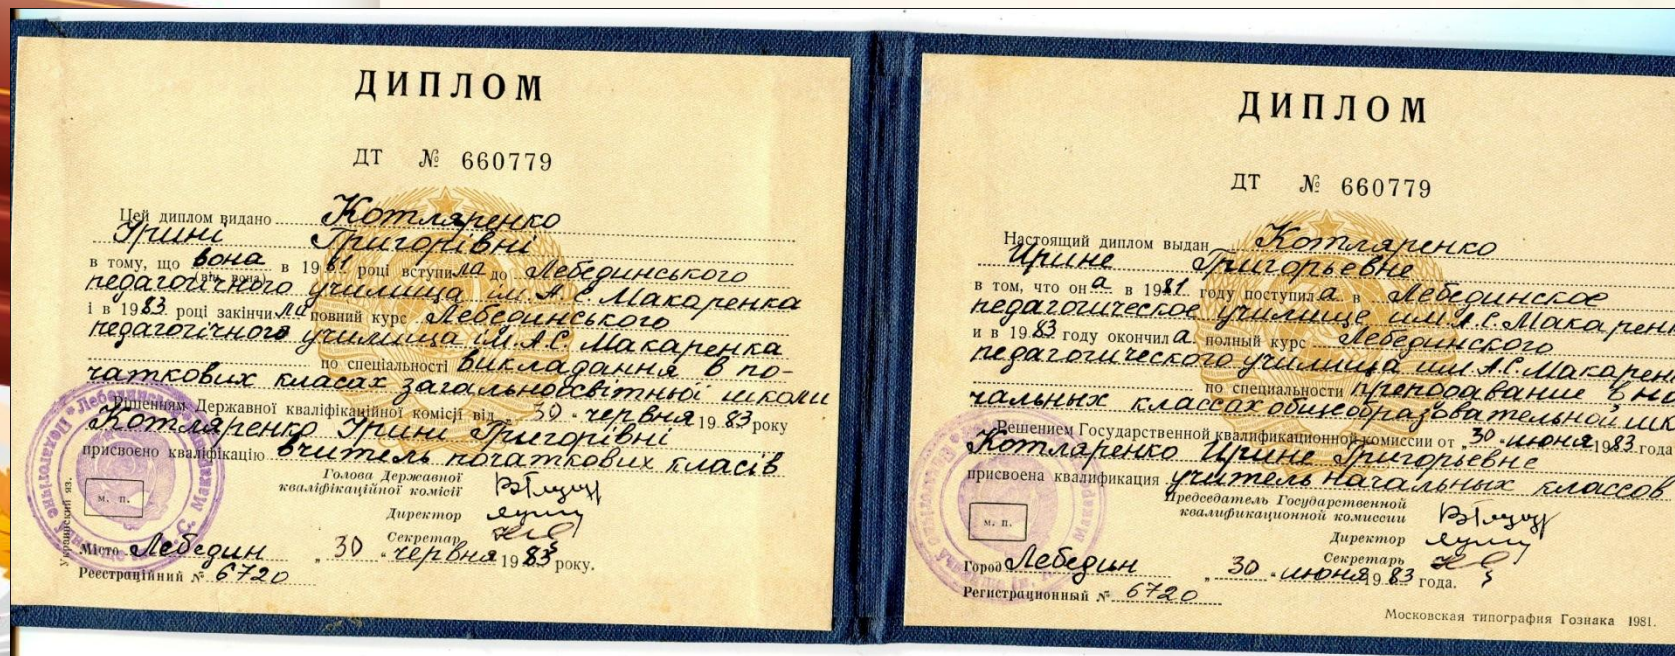 ДИПЛОМ
ДТ № 660779
Цей диплом видано Котляренко
Ірині Григорівні
в тому, що вона в 1981 році вступила до Лебединського
(він, вона)
педагогічного училища ім. А.С. Макаренка
і в 1983 році закінчила повний курс Лебединського
педагогічного училища ім. А.С. Макаренка
по спеціальності викладання в по-
чаткових класах загальноосвітньої школи
Рішенням Державної кваліфікаційної комісії від „30“ червня 1983 року
Котляренко Ірині Григорівні
присвоєно кваліфікацію вчитель початкових класів
Голова Державної
кваліфікаційної комісії
Директор
Секретар
м. п.
Український яз.
Місто Лебедин „30“ червня 1983 року.
Реєстраційний № 6720
ДИПЛОМ
ДТ № 660779
Настоящий диплом выдан Котляренко
Ирине Григорьевне
в том, что она в 1981 году поступила в Лебединское
педагогическое училище им. А.С. Макарен
и в 1983 году окончила полный курс Лебединского
педагогического училища им. А.С. Макарен
по специальности преподавание в на
чальных классах общеобразовательной шк
Решением Государственной квалификационной комиссии от „30“ июня 1983 года
Котляренко Ирине Григорьевне
присвоена квалификация учитель начальных классов
Председатель Государственной
квалификационной комиссии
Директор
Секретарь
м. п.
Город Лебедин „30“ июня 1983 года.
Регистрационный № 6720
Московская типография Гознака 1981.